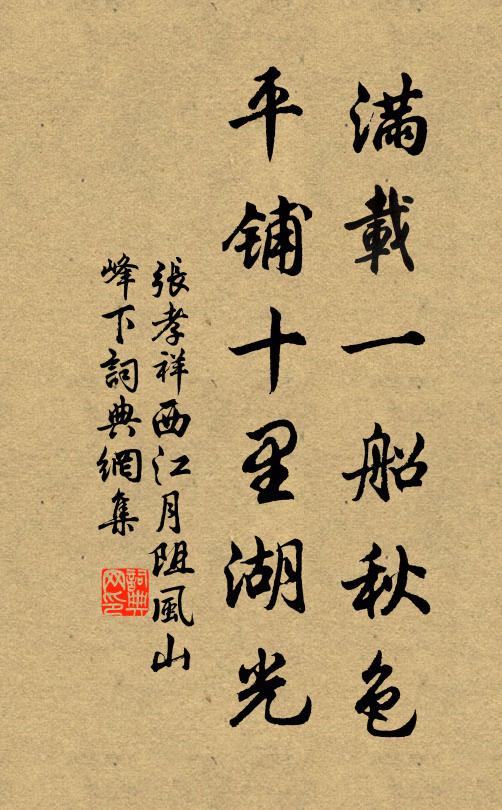 滿載一船秋色
平铺十里湖光
張孝祥西江月阻風山
峰下詞典網集
詞典网印